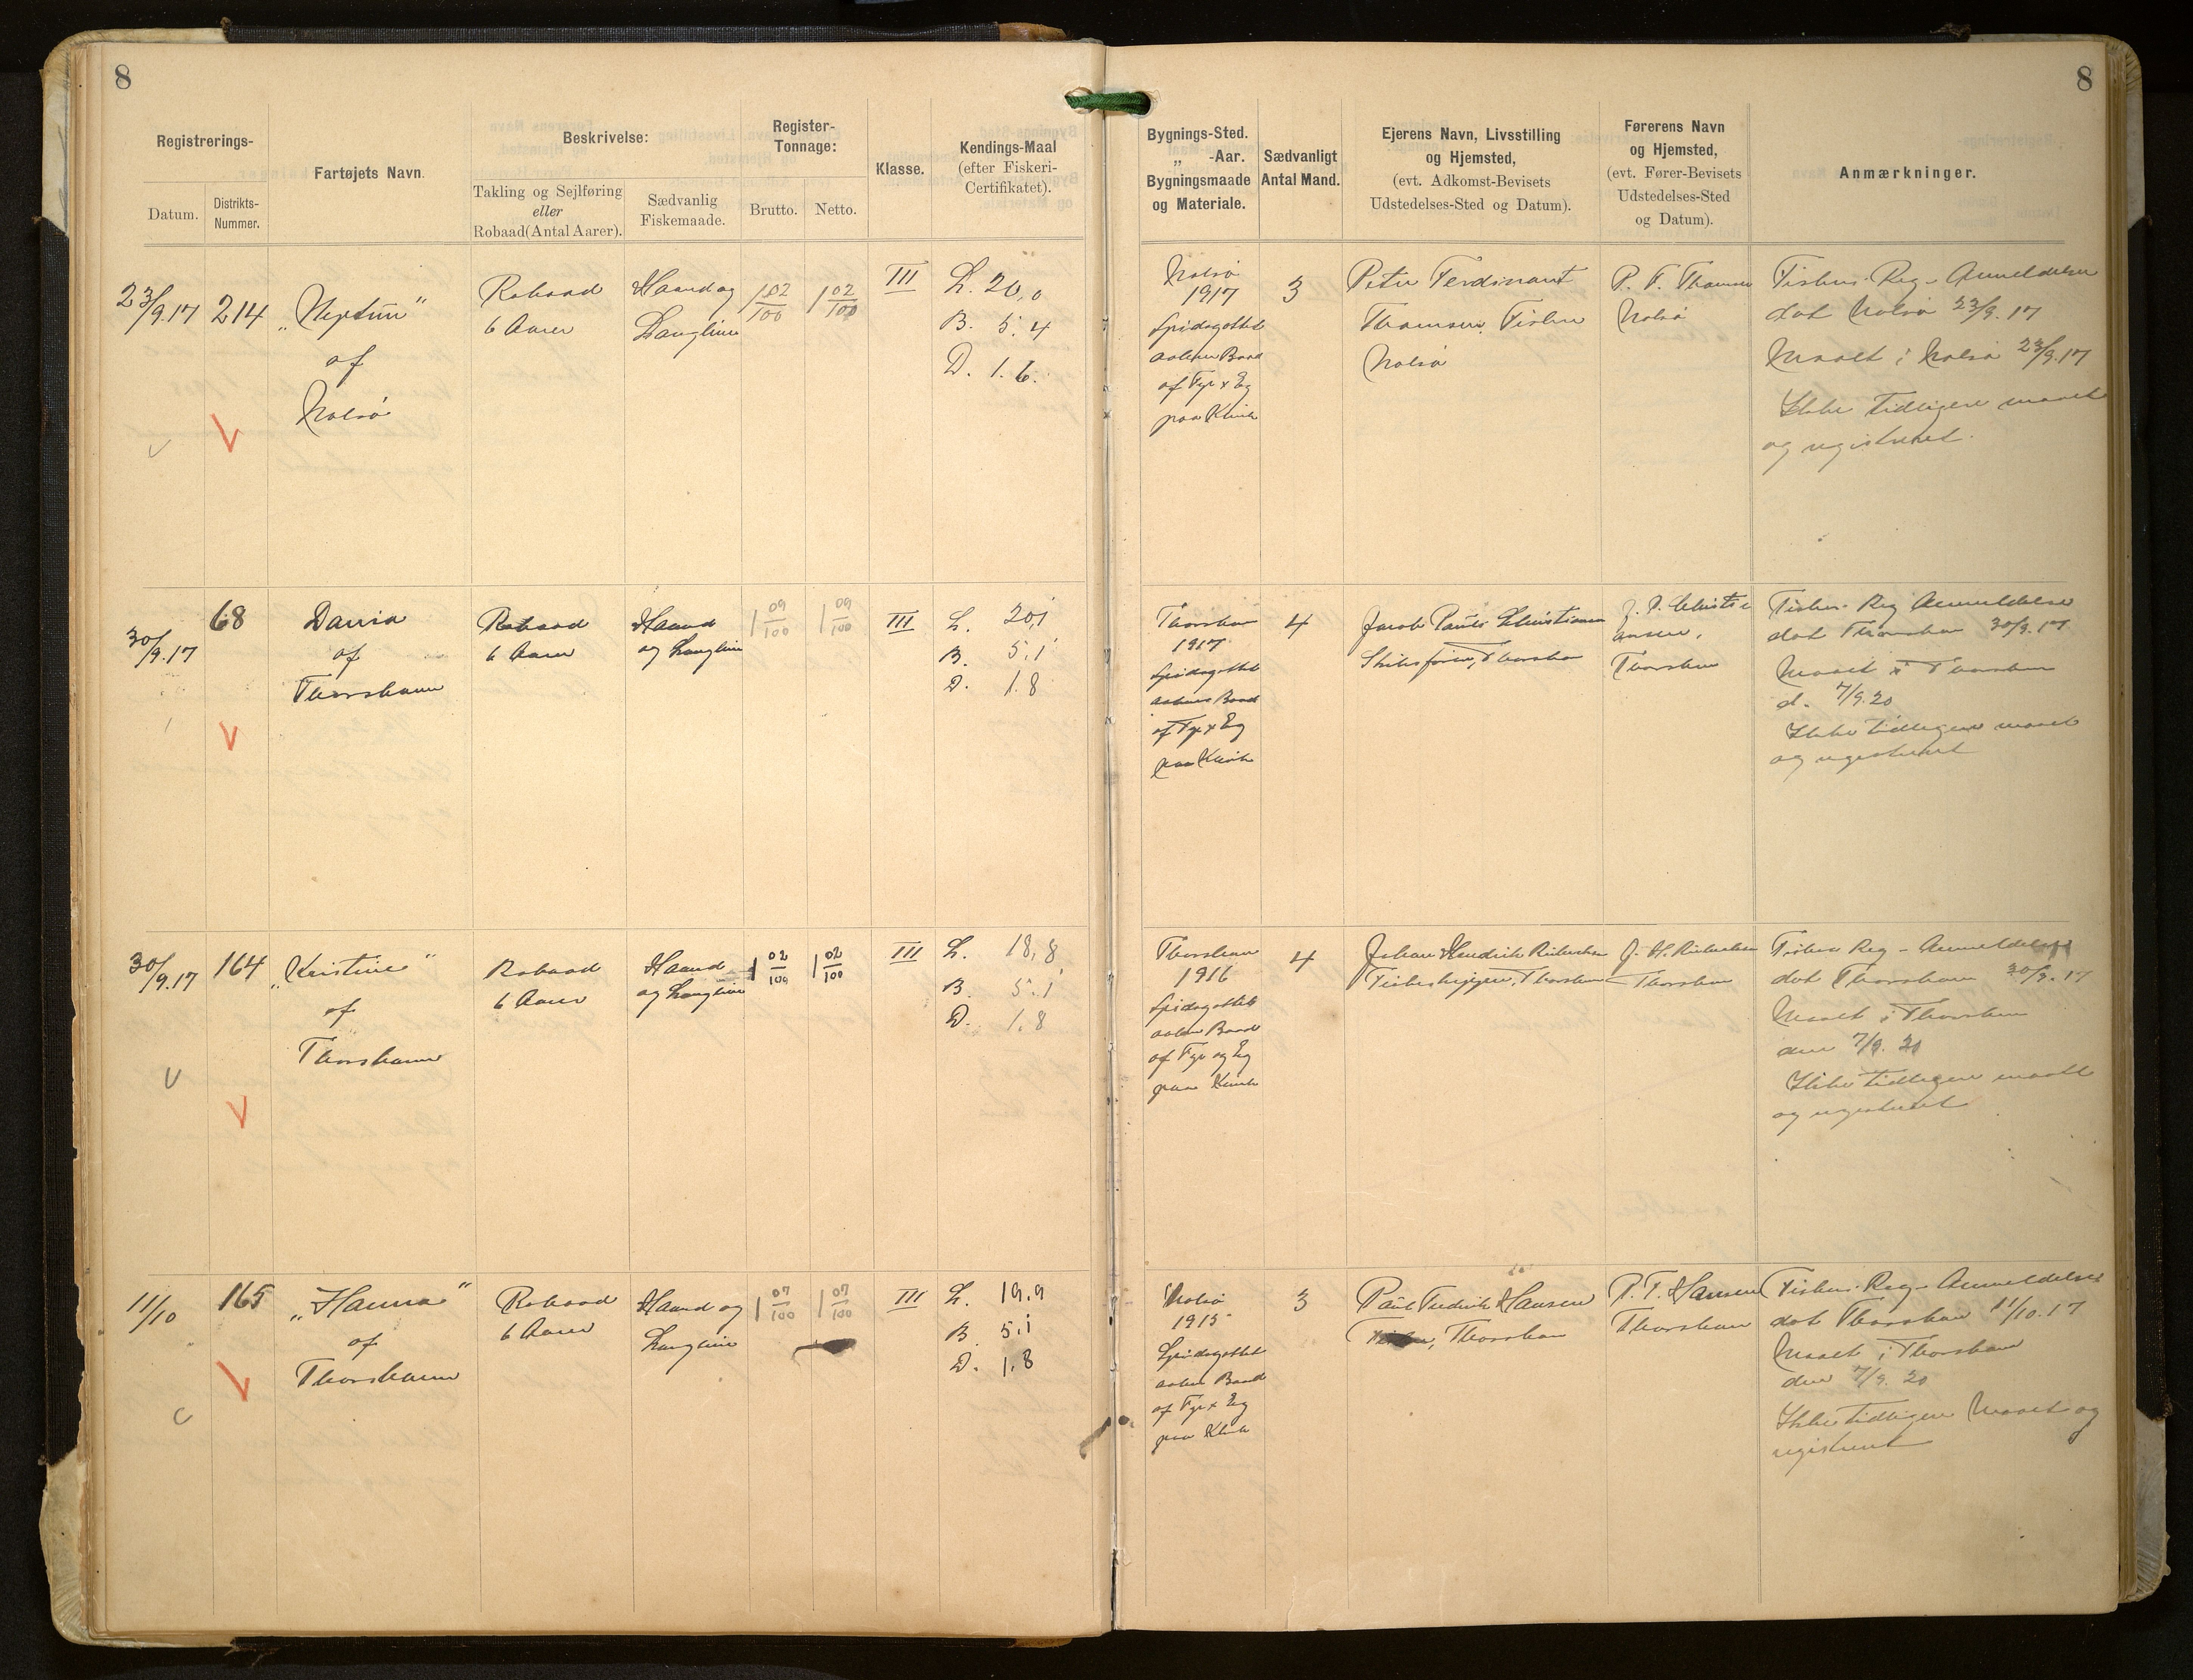 8
8
Registrerings-
Datum.
Distrikts-
Nummer.
Fartøjets Navn.
Beskrivelse:
Takling og Sejlføring
eller
Robaad (Antal Aarer).
Sædvanlig
Fiskemaade.
Register-
Tonnage:
Brutto.
Netto.
Klasse.
Kendings-Maal
(efter Fiskeri-
Certifikatet).
Bygnings-Sted.
„ -Aar.
Bygningsmaade
og Materiale.
Sædvanligt
Antal Mand.
Ejerens Navn, Livsstilling
og Hjemsted,
(evt. Adkomst-Bevisets
Udstedelses-Sted og Datum).
Førerens Navn
og Hjemsted,
(evt. Fører-Bevisets
Udstedelses-Sted
og Datum).
Anmærkninger.
23/9.17
214
„Neptun"
af
Nolsø
Robaad
6 Aarer
Haand og
Langline
1 02/100
1 02/100
III
L. 20,0
B. 5.4
D. 1.6.
Nolsø
1917
Spidsgattet
aaben Baad
af Fyr x Eg
paa Klink
3
Peter Ferdinant
Thomsen, Fisker
Nolsø
P. F. Thomsen
Nolsø
Fisker-Reg-Anmeldelse
dat Nolsø 23/9.17
Maalt i Nolsø 23/9.17
Ikke tidligere maalt
og registreret.
30/9.17
68
Dania
af
Thorshavn
Robaad
6 Aarer
Haand
og Langline
1 09/100
1 09/100
III
L. 20,1
B. 5,1
D. 1.8
Thorshavn
1917
Spidsgattet
aaben Baad
af Fyr x Eg
paa Klink
4
Jacob Paule Christiansen
Skibsfører, Thorshavn
J. P. Christi
ansen,
Thorshavn
Fisker-Reg Anmeldelse
dat Thorshavn 30/9.17
Maalt i Thorshavn
d. 7/9.20
Ikke tidligere maalt
og registreret
30/9.17
164
„Kristine"
af
Thorshavn
Robaad
6 Aarer
Haand
og Langline
1 02/100
1 02/100
III
L. 18,8
B. 5.1
D. 1.8
Thorshavn
1916
Spidsgattet
aaben Baad
af Fyr og Eg
paa Klink
4
Johan Hendrik
Fiskeskipper, Thorshavn
J. H.
Thorshavn
Fisker Reg-Anmeldelse
dat Thorshavn 30/9.17
Maalt i Thorshavn
den 7/9.20
Ikke tidligere maalt
og registreret
11/10
165
„Hanna"
af
Thorshavn
Robaad
6 Aarer
Haand og
Langline
1 07/100
1 07/100
III
L. 19.9
B. 5.1
D. 1.8
Nolsø
1915
Spidsgattet
aaben Baad
af Fyr x Eg
paa Klink
3
Paul Fredrik Hansen
Thorshavn
P. F. Hansen
Thorshavn
Fisker-Reg-Anmeldelse
dat Thorshavn 11/10.17
Maalt i Thorshavn
den 7/9.20
Ikke tidligere Maalt og
registreret